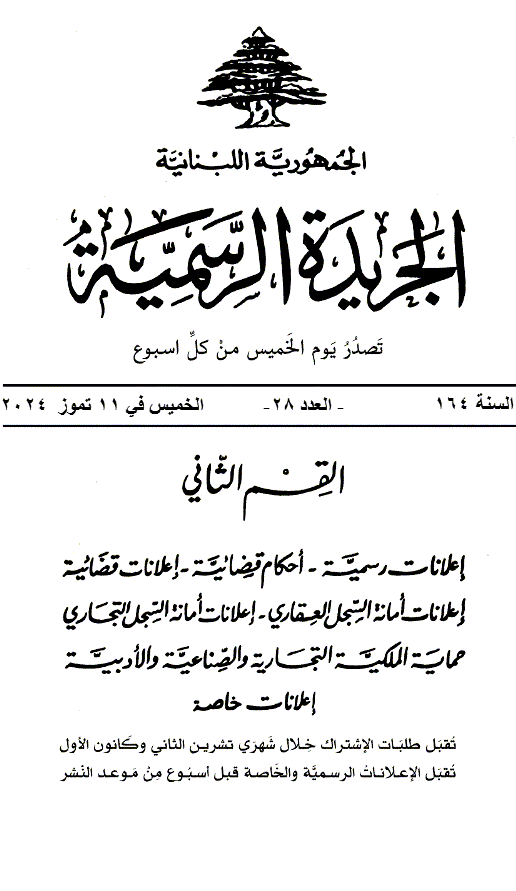 الجمهورية اللبنانية
الجريدة الرسمية
تَصدُرُ يَوم الخَميس منْ كلِّ اسبوع
السنة ١٦٤ - العدد ٢٨- الخميس في ١١ تموز ٢٠٢٤
القِسْم الثّاني
إعلانات رسميَّة - أحكام قضائيَّة - إعلانات قضائية
إعلانات أمانة السِّجل العقاري - إعلانات أمانة السِّجل التجاري
حماية الملكيَّة التجارية والصِّناعيَّة والأدبيَّة
إعلانات خاصة
تُقبَل طلبَات الإشتراك خِلال شَهرَي تشرين الثاني وكَانون الأول
تُقبَل الإعلاناتُ الرسميَّة والخَاصة قبل أسبُوع مِنْ مَوعد النّشر